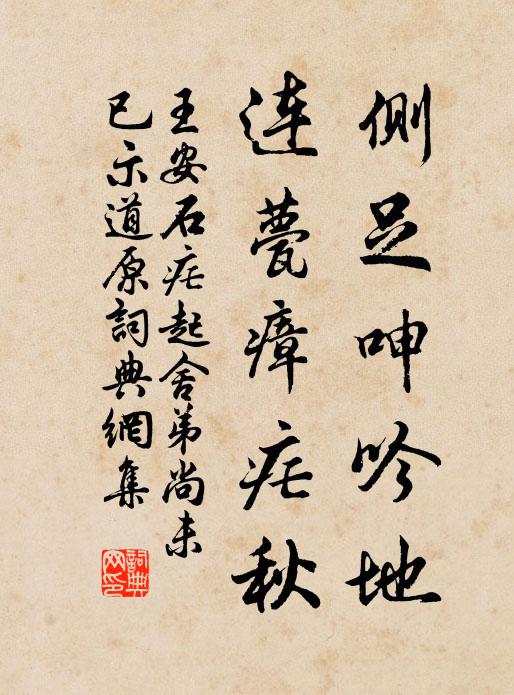 側足呻吟地
連甍瘴疟秋
王安石疟起舍弟尚未
已示道原詞典網集
詞典網印